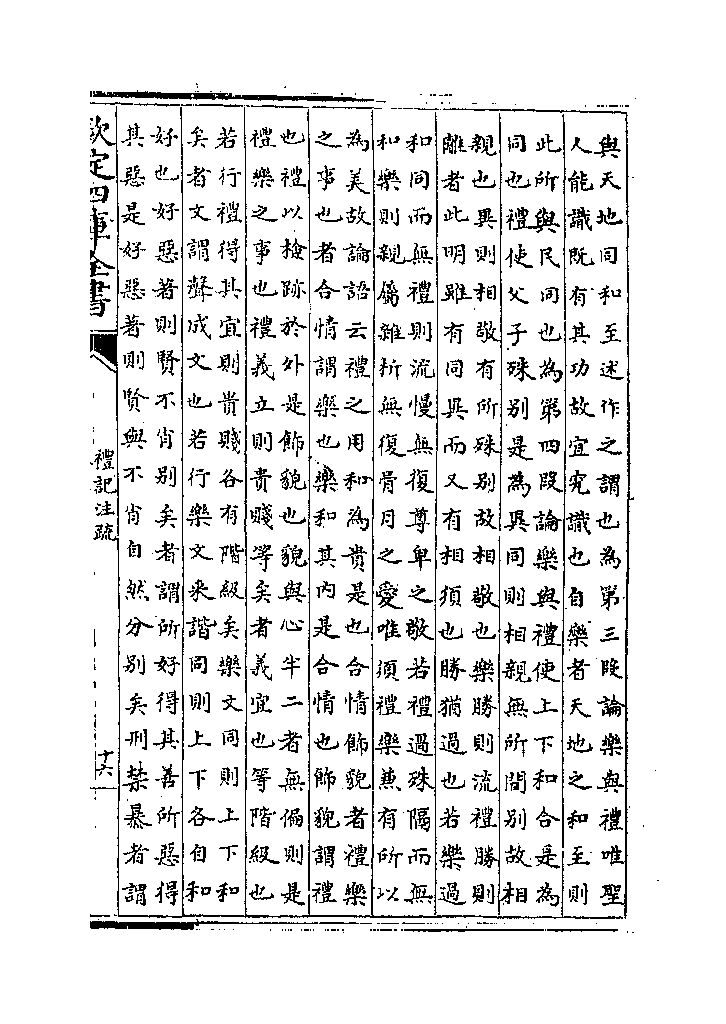 與天地同和至述作之謂也為第三段論樂與禮唯聖
人能識既有其功故宜究識也自樂者天地之和至則
此所與民同也為第四段論樂與禮使上下和合是為
同也禮使父子殊別是為異同則相親無所間別故相
親也異則相敬有所殊別故相敬也樂勝則流禮勝則
離者此明雖有同異而又有相須也勝猶過也若樂過
和同而無禮則流慢無復尊卑之敬若禮過殊隔而無
和樂則親屬離析無復骨月之愛唯須禮樂兼有所以
為美故論語云禮之用和為貴是也合情飾貌者禮樂
之事也者合情謂樂也樂和其內是合情也飾貌謂禮
也禮以檢跡於外是飾貌也貌與心半二者無偏則是
禮樂之事也禮義立則貴賤等矣者義宜也等階級也
若行禮得其宜則貴賤各有階級矣樂文同則上下和
矣者文謂聲成文也若行樂文采諧同則上下各自和
好也好惡著則賢不肖別矣者謂所好得其善所惡得
其惡是好惡著則賢與不肖自然分別矣刑禁暴者謂
欽定四庫全書
禮記注疏
十六